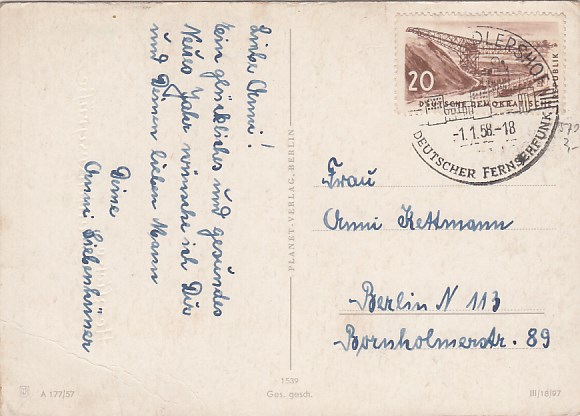 Liebe Anni!
Ein glückliches und gesundes
Neues Jahr wünsche ich Dir
und Deinem lieben Mann
Deine
Anni Liebenhüner
PLANET-VERLAG, BERLIN
20
DEUTSCHE DEMOKRATISCHE
REPUBLIK
ADLERSHOF
-1.1.58.-18
DEUTSCHER FERNSEHFUNK
Frau
Anni Kettmann
Berlin N 113
Bornholmerstr. 89
A 177/57
1539
Ges. gesch.
III/18/97